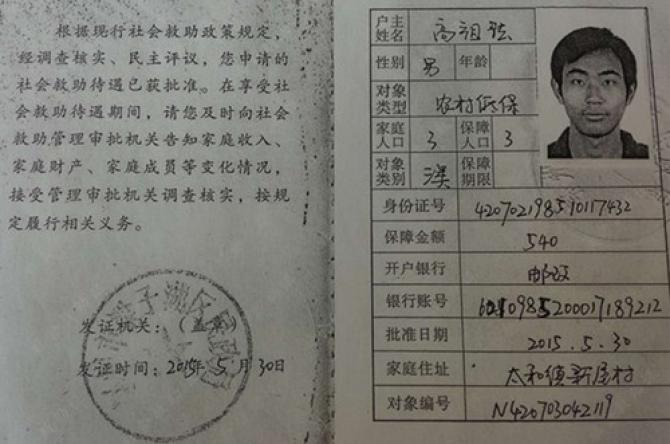 根据现行社会救助政策规定，
经调查核实、民主评议，您申请的
社会救助待遇已获批准。在享受社
会救助待遇期间，请您及时向社会
救助管理审批机关告知家庭收入、
家庭财产、家庭成员等变化情况，
接受管理审批机关调查核实，按规
定履行相关义务。
发证机关：（盖章）
发证时间：2015年5月30日
户主姓名 高祖
性别 男 年龄
对象类型 农村低保
家庭人口 3 保障人口 3
对象类别 保障期限
身份证号 420702198510117432
保障金额 540
开户银行 邮政
银行账号
批准日期 2015.5.30
家庭住址 太和镇新屋村
对象编号 N420703042119